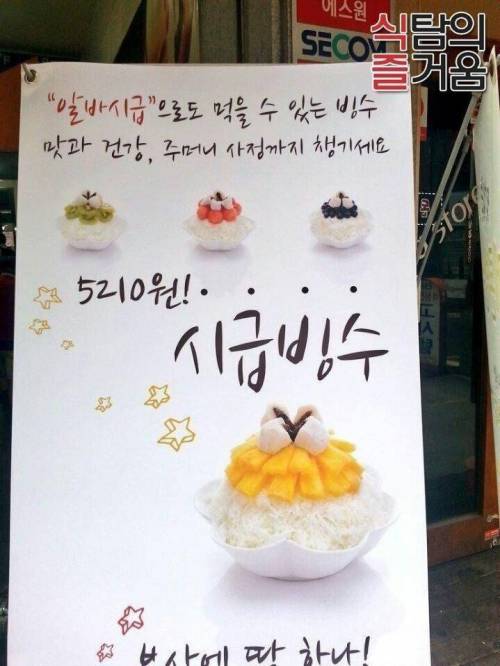 에스원
SECOM
식탐의
즐거움
"알바시급"으로도 먹을 수 있는 빙수
맛과 건강, 주머니 사정까지 챙기세요
5210원!
시급빙수
부산에 딱 하나!